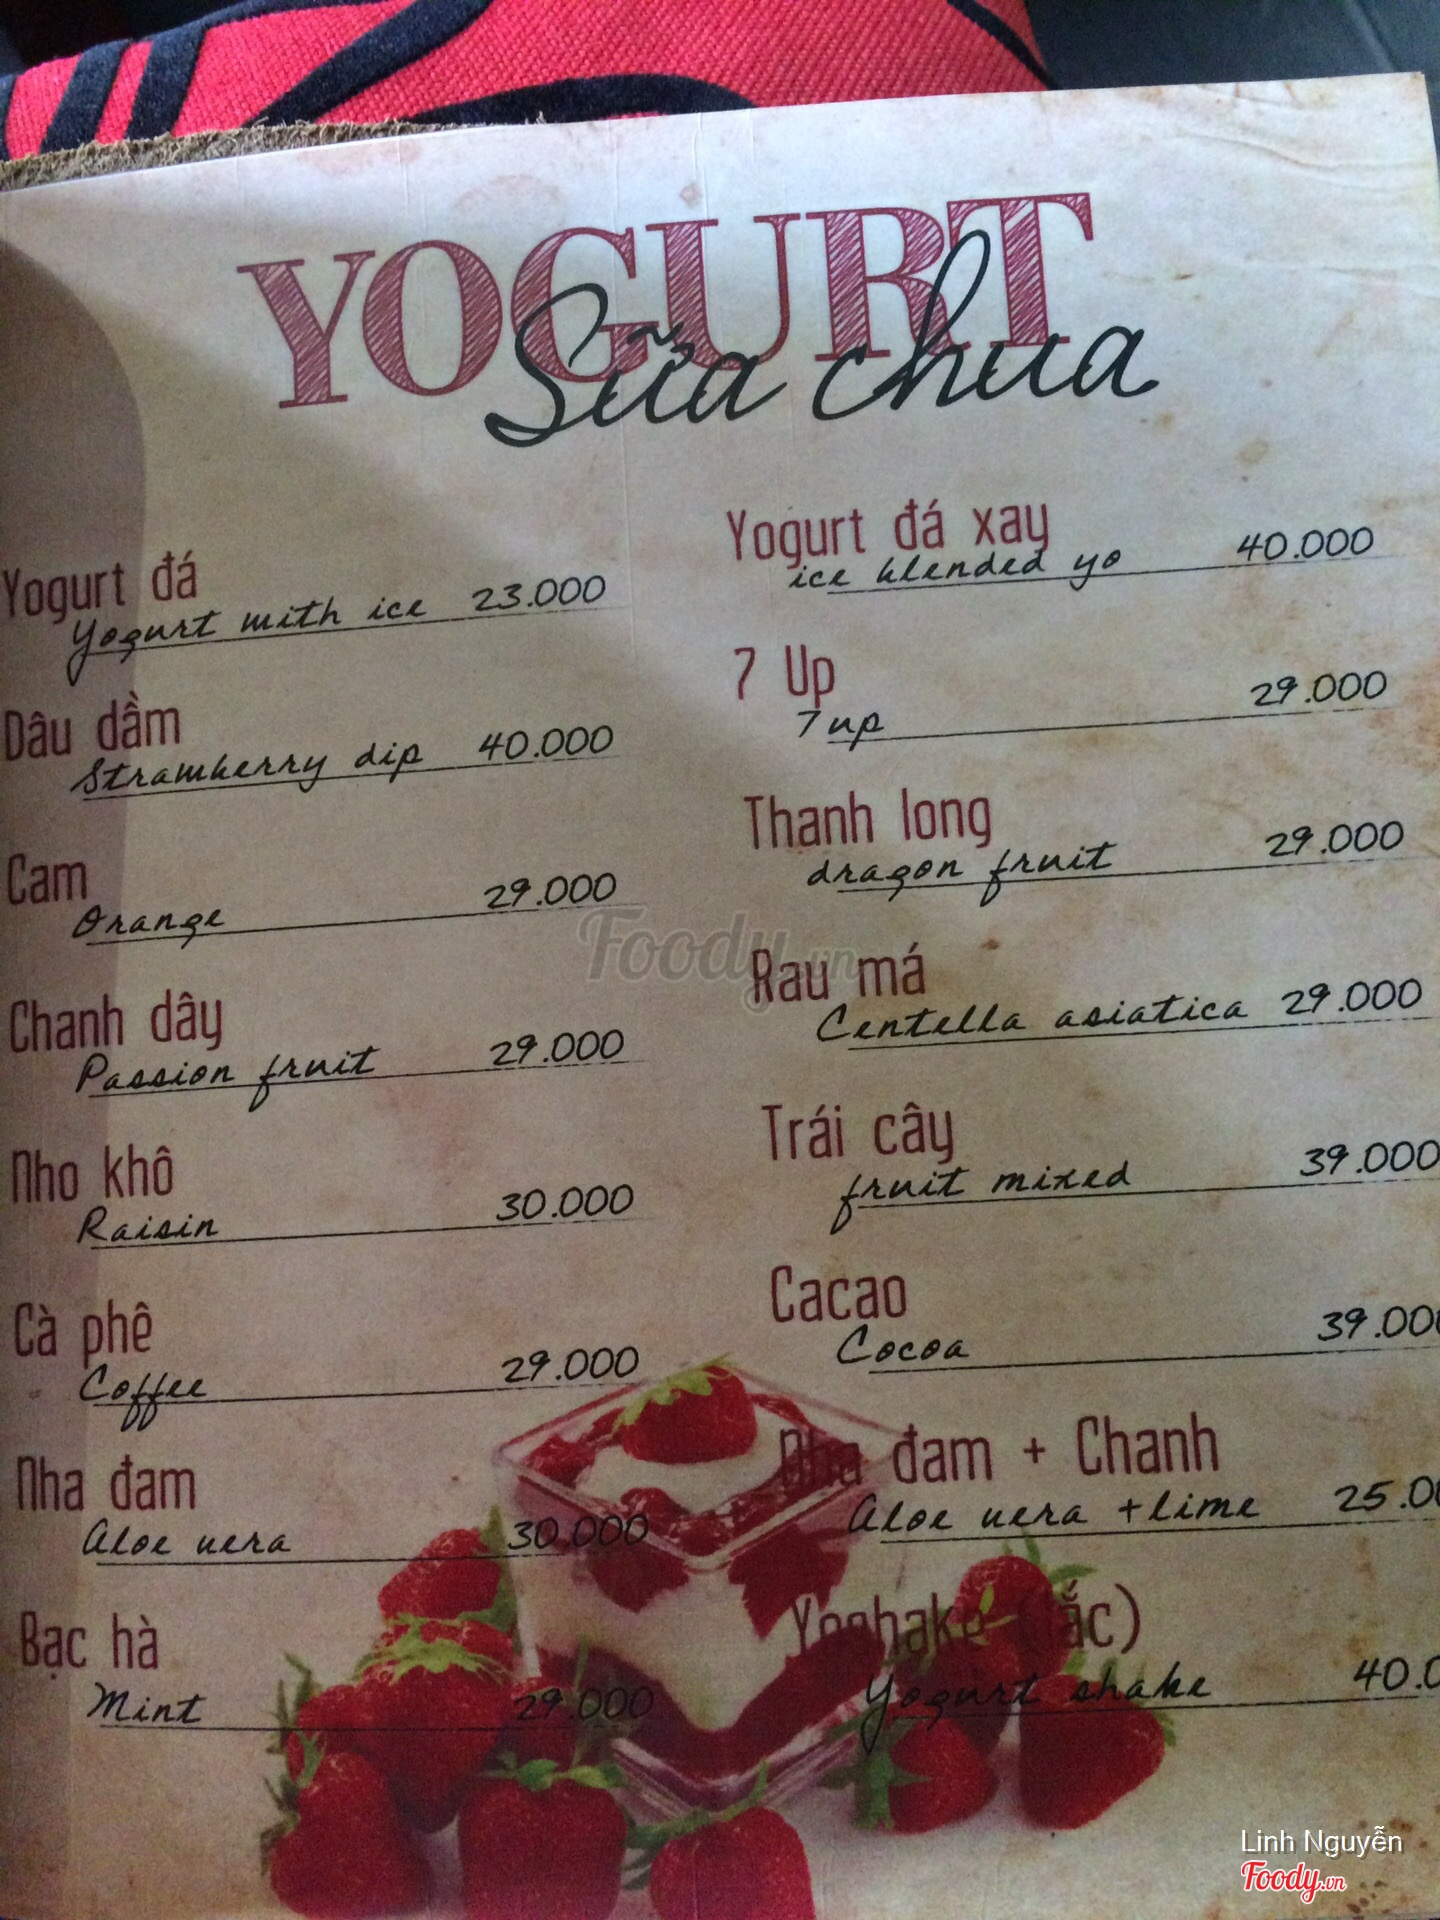 YOGURT
Sữa chua
Yogurt đá
Yogurt with ice 23.000
Dâu dầm
Strawberry dip 40.000
Cam
Orange 29.000
Chanh dây
Passion fruit 29.000
Nho khô
Raisin 30.000
Cà phê
Coffee 29.000
Nha đam
Aloe vera 30.000
Bạc hà
Mint 29.000
Yogurt đá xay
ice blended yo 40.000
7 Up
7 up 29.000
Thanh long
dragon fruit 29.000
Rau má
Centella asiatica 29.000
Trái cây
fruit mixed 39.000
Cacao
Cocoa 39.000
Nha đam + Chanh
Aloe vera + lime 25.00
(lắc)
Yogurt shake 40.0
Foody.vn
Linh Nguyễn
Foody.vn